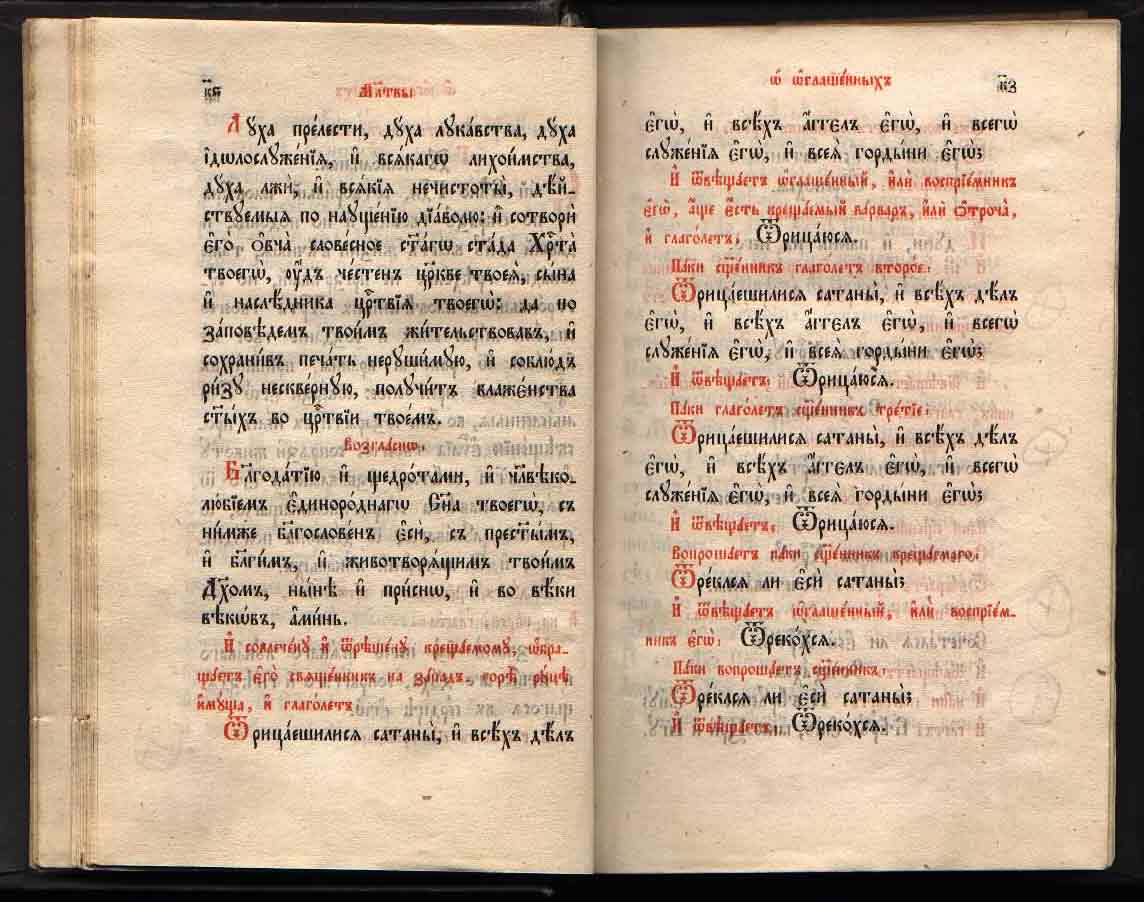 к҃ѕ
Мл҃твы
Дꙋ́ха пре́лести, дꙋ́ха лꙋка́вства, дꙋ́ха
і҆дѡлослꙋже́нїѧ, и҆ всѧ́кагѡ лихои́мства,
дꙋ́ха лжѝ, и҆ всѧ́кїѧ нечистоты̀, дѣ́й-
ствꙋемыѧ по наꙋще́нїю дїа́волю: и҆ сотворѝ
е҆го̀ ѻ҆вча̀ слове́сное ст҃а́гѡ ста́да Хрⷭ҇та̀
твоегѡ̀, ᲂу҆́дъ че́стенъ цр҃кве твоеѧ̀, сы́на
и҆ наслѣ́дника црⷭ҇твїѧ твоегѡ̀: да по
за́повѣдемъ твои̑мъ жи́тельствовавъ, и҆
сохрани́въ печа́ть нерꙋши́мꙋю, и҆ соблю́дъ
ри́зꙋ нескве́рнꙋю, полꙋчи́тъ блаже́нства
ст҃ы́хъ во црⷭ҇твїи твое́мъ.
Возгла́снѡ:
Бл҃года́тїю и҆ щедро́тами, и҆ чл҃вѣко-
лю́бїемъ є҆диноро́днагѡ Сн҃а твоегѡ̀, съ
ни́мже бл҃гослове́нъ є҆сѝ, съ прест҃ы́мъ,
и҆ бл҃ги́мъ, и҆ животворѧ́щимъ твои́мъ
Дх҃омъ, ны́нѣ и҆ при́снѡ, и҆ во вѣ́ки
вѣкѡ́въ, а҆ми́нь.
И҆ совлече́нꙋ и҆ ѿрѣше́нꙋ креща́емомꙋ, ѡ҆бра-
ща́етъ є҆го̀ свѧще́нникъ на за́падъ, горѣ̀ рꙋ́цѣ
и҆мꙋ́ща, и҆ глаго́летъ
Ѿрица́ешилисѧ сатаны̀, и҆ всѣ́хъ дѣ́лъ
ѡ҆ ѡ҆глаше́нныхъ
к҃з
є҆гѡ̀, и҆ всѣ́хъ а҆́ггелъ є҆гѡ̀, и҆ всегѡ̀
слꙋже́нїѧ є҆гѡ̀, и҆ всеѧ̀ горды́ни є҆гѡ̀;
И҆ ѿвѣща́етъ ѡ҆глаше́нный, и҆лѝ воспрїе́мникъ
є҆гѡ̀, а҆́ще є҆́сть креща́емый ва́рваръ, и҆лѝ ѻ҆троча̀,
и҆ глаго́летъ: Ѿрица́юсѧ.
Па́ки сщ҃е́нникъ глаго́летъ второ́е:
Ѿрица́ешилисѧ сатаны̀, и҆ всѣ́хъ дѣ́лъ
є҆гѡ̀, и҆ всѣ́хъ а҆́ггелъ є҆гѡ̀, и҆ всегѡ̀
слꙋже́нїѧ є҆гѡ̀, и҆ всеѧ̀ горды́ни є҆гѡ̀;
И҆ ѿвѣща́етъ: Ѿрица́юсѧ.
Па́ки глаго́летъ сщ҃е́нникъ тре́тїе:
Ѿрица́ешилисѧ сатаны̀, и҆ всѣ́хъ дѣ́лъ
є҆гѡ̀, и҆ всѣ́хъ а҆́ггелъ є҆гѡ̀, и҆ всегѡ̀
слꙋже́нїѧ є҆гѡ̀, и҆ всеѧ̀ горды́ни є҆гѡ̀;
И҆ ѿвѣща́етъ: Ѿрица́юсѧ.
Вопроша́етъ па́ки сщ҃е́нникъ креща́емаго:
Ѿре́клсѧ ли є҆сѝ сатаны̀;
И҆ ѿвѣща́етъ ѡ҆глаше́нный, и҆лѝ воспрїе́м-
никъ є҆гѡ̀: Ѿреко́хсѧ.
Па́ки вопроша́етъ сщ҃е́нникъ:
Ѿре́клсѧ ли є҆сѝ сатаны̀;
И҆ ѿвѣща́етъ: Ѿреко́хсѧ.